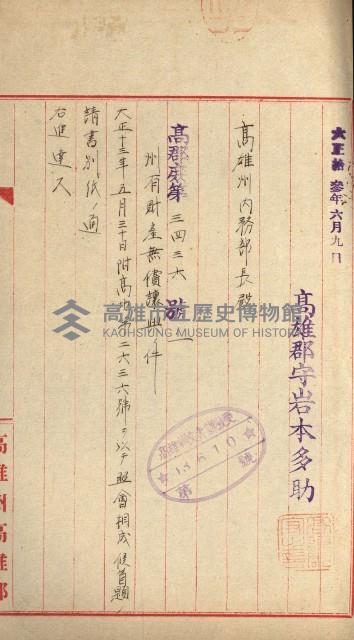 大正拾参年六月九日
高雄郡守岩本多助
高雄州内務部長殿
高郡庶第三四三六號ノ一
州有財産無償讓與ノ件
大正十三年五月三十日附高地第二六三六號ヲ以テ照會相成候首題
請書別紙ノ通
右進達ス
13.6.10
第 號
高雄州高雄郡
高雄市立歷史博物館
KAOHSIUNG MUSEUM OF HISTORY